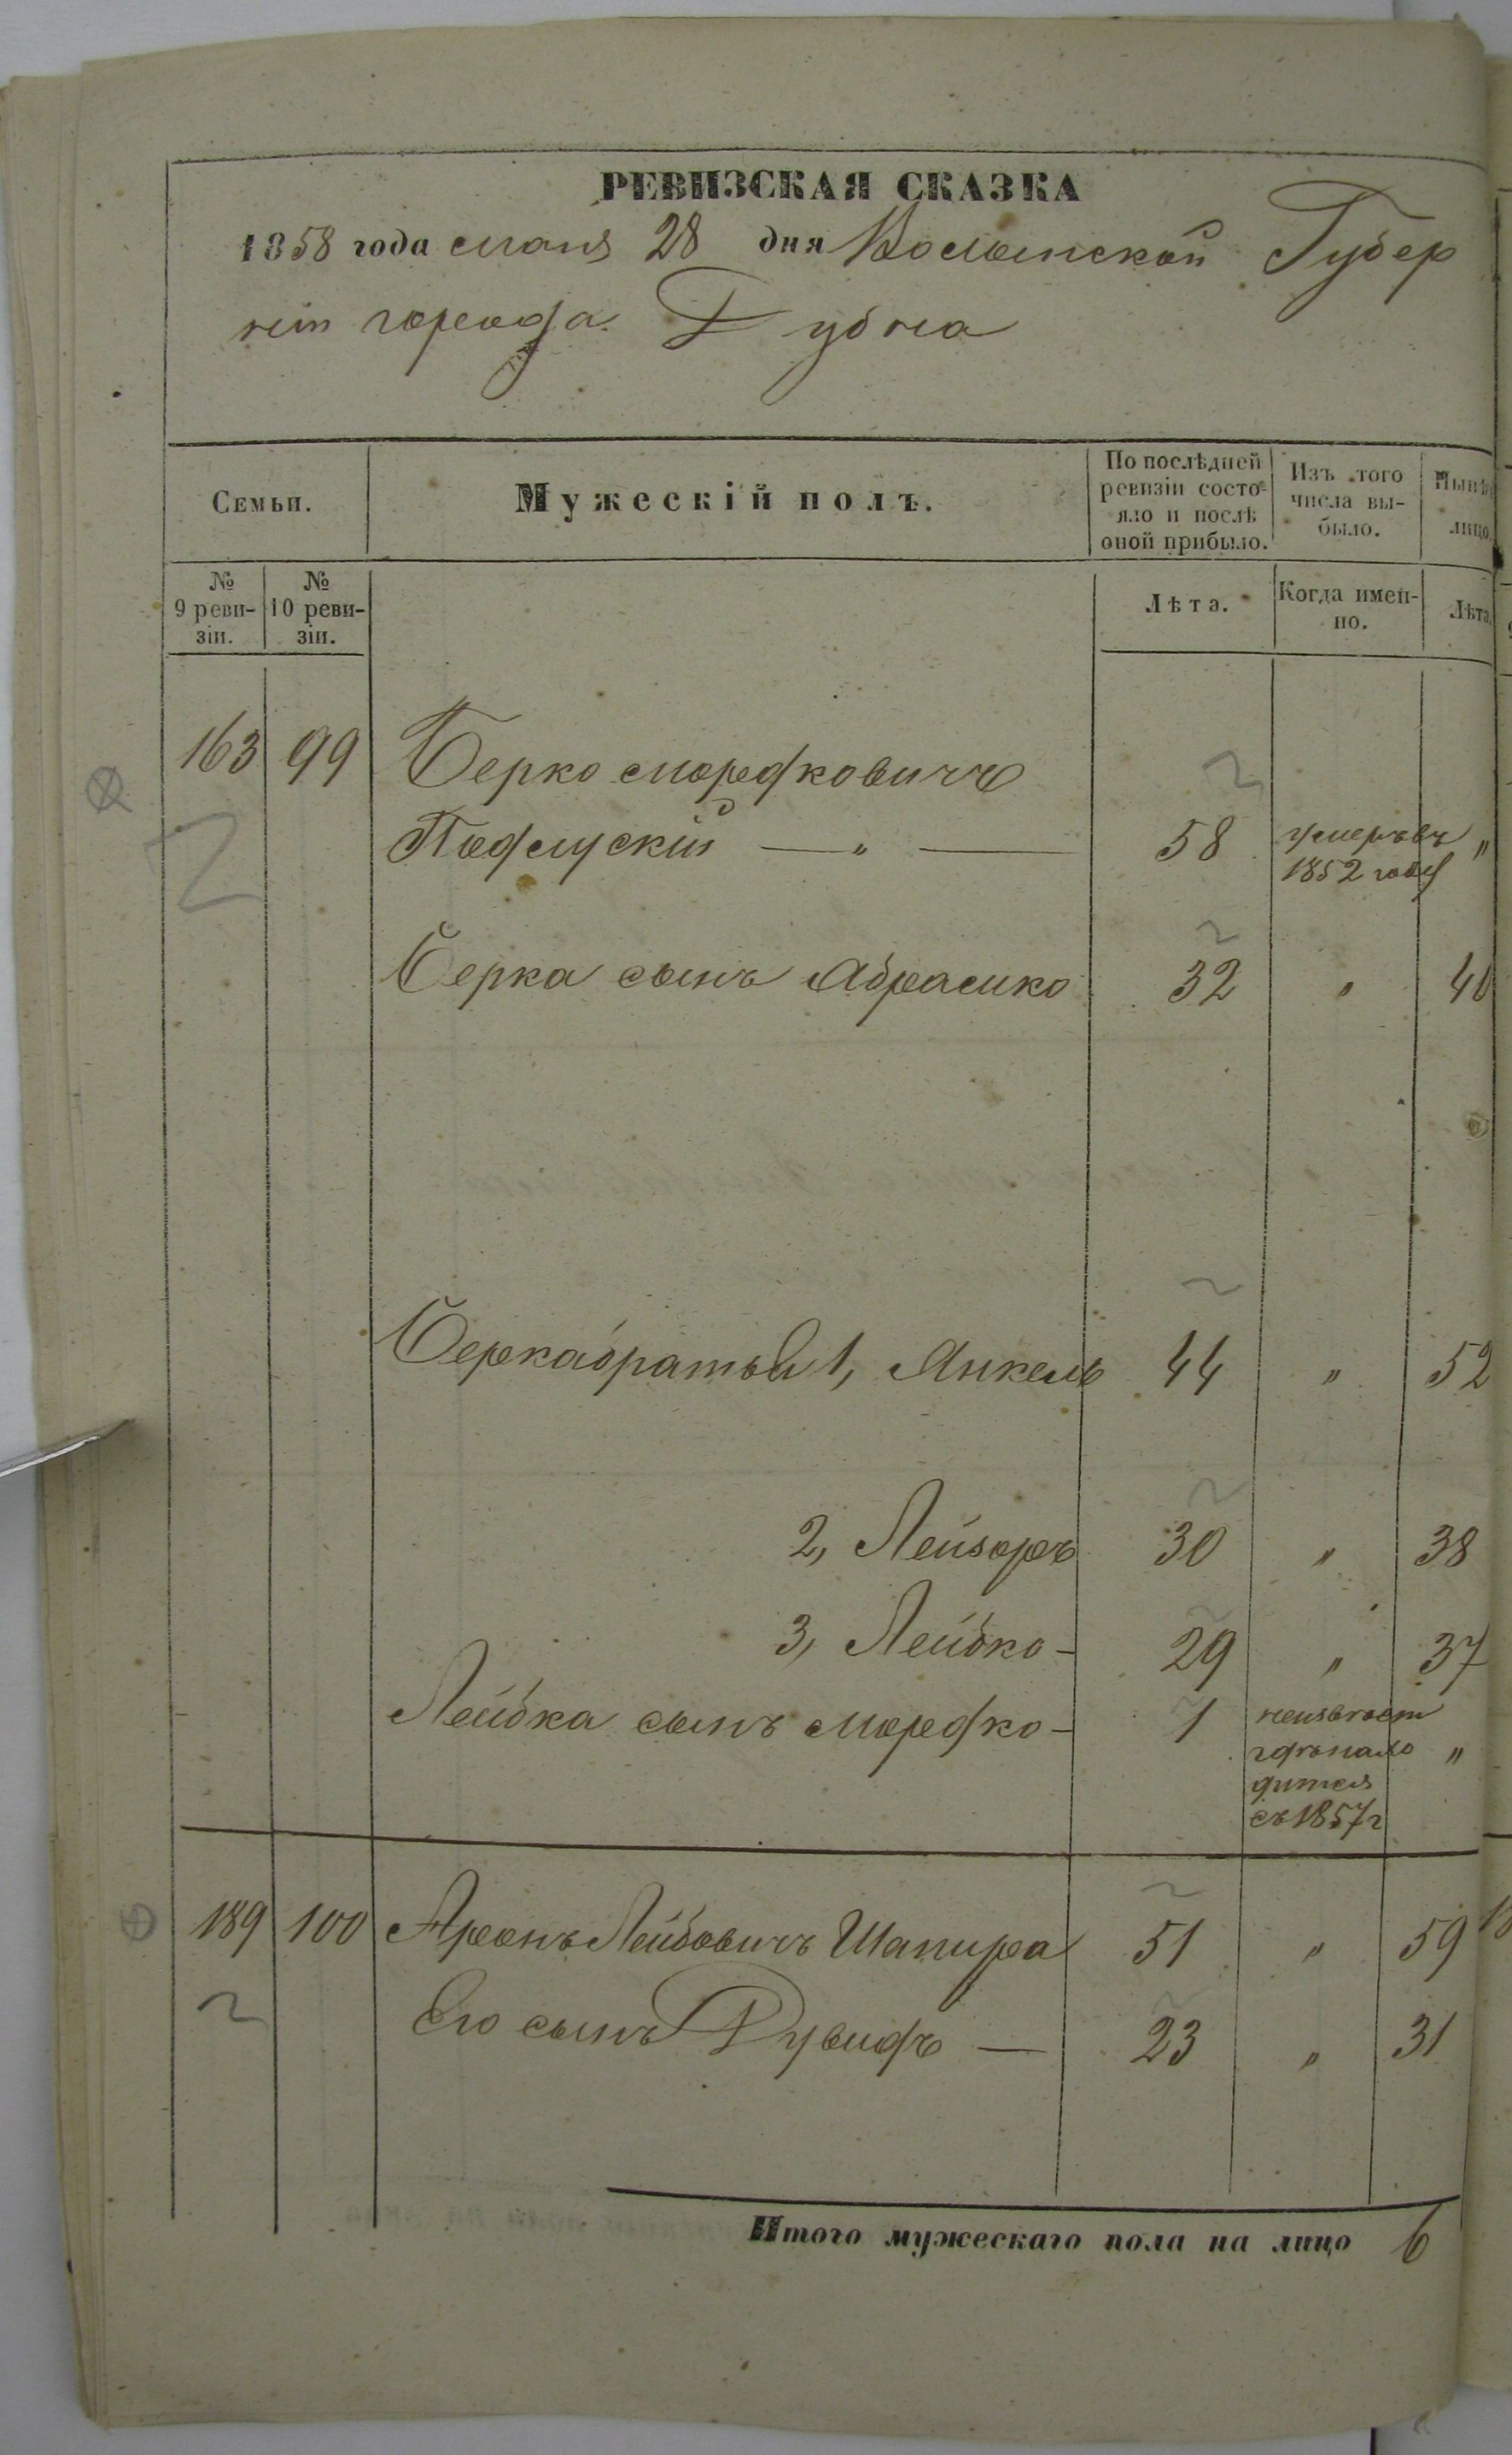 РЕВИЗСКАЯ СКАЗКА
1858 года мая 28 дня Волынской Губер
ніи города Дубна
Семьи.
Мужескій полъ.
По послѣдней ревизіи состо-
яло и послѣ
оной прибыло.
Изъ того
числа вы-
было.
Нынѣ
лицо.
№
9 реви-
зіи.
№
10 реви-
зіи.
Лѣта.
Когда имен-
но.
Лѣта.
163 99 Берко Мордковичъ
Подлуский — " — 58 умеръ въ 1852 году "
Берка сынъ Абрамко 32 " 40
Берка братья 1, Янкель 44 " 52
2, Лейзоръ 30 " 38
3, Лейбко - 29 " 37
Лейбка сынъ Мордко - 1 неизвѣстно
гдѣ нахо "
дится
съ 1857 г
189 100 Аронъ Лейбовичъ Шапира 51 " 59
Его сынъ Дувидъ — 23 " 31
Итого мужескаго пола на лицо 6